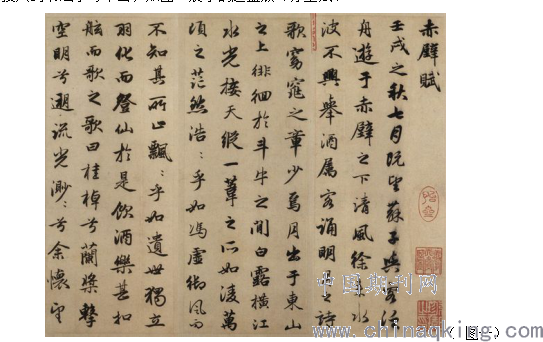 赤壁賦
壬戌之秋七月既望蘇子與客泛
舟遊于赤壁之下清風徐來水
波不興舉酒屬客誦明月之詩
歌窈窕之章少焉月出于東山
之上徘徊於斗牛之間白露橫江
水光接天縱一葦之所如淩萬
頃之茫然浩〻乎如馮虛御風而
不知其所止飄〻乎如遺世獨立
羽化而登仙於是飲酒樂甚扣
舷而歌之歌曰桂棹兮蘭槳擊
空明兮遡流光渺〻兮余懷望
中国期刊网
www.chinaqking.com